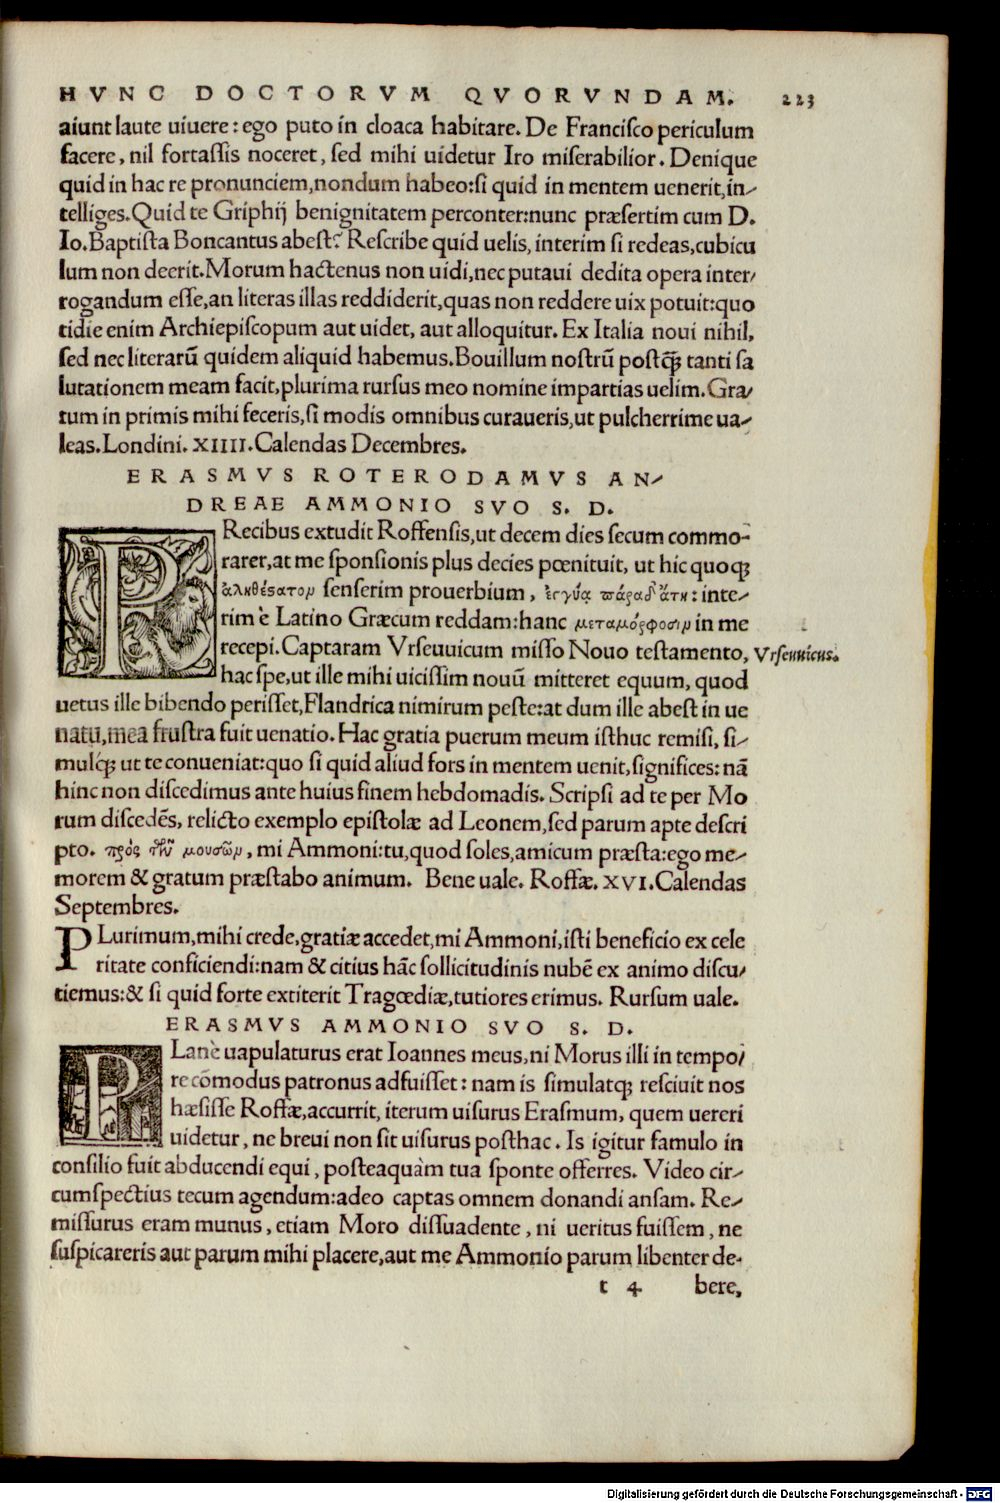 HVNC DOCTORVM QVORVNDAM. 223
aiunt laute uiuere: ego puto in cloaca habitare. De Franciſco periculum
facere, nil fortaſſis noceret, ſed mihi uidetur Iro miſerabilior. Denique
quid in hac re pronunciem, nondum habeo: ſi quid in mentem uenerit, in-
telliges. Quid te Griphij benignitatem perconter: nunc præſertim cum D.
Io. Baptiſta Boncantus abeſt? Reſcribe quid uelis, interim ſi redeas, cubicu
lum non deerit. Morum hactenus non uidi, nec putaui dedita opera inter-
rogandum eſſe, an literas illas reddiderit, quas non reddere uix potuit: quo
tidie enim Archiepiſcopum aut uidet, aut alloquitur. Ex Italia noui nihil,
ſed nec literarũ quidem aliquid habemus. Bouillum noſtrũ poſtq̃ꝫ tanti ſa
lutationem meam facit, plurima rurſus meo nomine impartias uelim. Gra-
tum in primis mihi feceris, ſi modis omnibus curaueris, ut pulcherrime ua-
leas. Londini. XIIII. Calendas Decembres.
ERASMVS ROTERODAMVS AN-
DREAE AMMONIO SVO S. D.
PRecibus extudit Roffenſis, ut decem dies ſecum commo-
rarer, at me ſponſionis plus decies pœnituit, ut hic quoqꝫ
ἀληθέϛατον ſenſerim prouerbium, ἐγγύα πάραδ᾽ ἄτη: inte-
rim è Latino Græcum reddam: hanc μεταμόρφοσιν in me
recepi. Captaram Vrſeuuicum miſſo Nouo teſtamento, Vrſeuuicus.
hac ſpe, ut ille mihi uiciſſim nouũ mitteret equum, quod
uetus ille bibendo periſſet, Flandrica nimirum peſte: at dum ille abeſt in ue
natu, mea fruſtra fuit uenatio. Hac gratia puerum meum iſthuc remiſi, ſi-
mulqꝫ ut te conueniat: quo ſi quid aliud fors in mentem uenit, ſignifices: nã
hinc non diſcedimus ante huius finem hebdomadis. Scripſi ad te per Mo
rum diſcedẽs, relicto exemplo epiſtolæ ad Leonem, ſed parum apte deſcri
pto. πρὸς τῶν μουσῶν, mi Ammoni: tu, quod ſoles, amicum præſta: ego me-
morem & gratum præſtabo animum. Bene uale. Roffæ. XVI. Calendas
Septembres.
PLurimum, mihi crede, gratiæ accedet, mi Ammoni, iſti beneficio ex cele
ritate conficiendi: nam & citius hãc ſollicitudinis nubẽ ex animo diſcu-
tiemus: & ſi quid forte extiterit Tragœdiæ, tutiores erimus. Rurſum uale.
ERASMVS AMMONIO SVO S. D.
PLanè uapulaturus erat Ioannes meus, ni Morus illi in tempo-
re cõmodus patronus adfuiſſet: nam is ſimulatqꝫ reſciuit nos
hæſiſſe Roffæ, accurrit, iterum uiſurus Eraſmum, quem uereri
uidetur, ne breui non ſit uiſurus poſthac. Is igitur famulo in
conſilio fuit abducendi equi, poſteaquàm tua ſponte offerres. Video cir-
cumſpectius tecum agendum: adeo captas omnem donandi anſam. Re-
miſſurus eram munus, etiam Moro diſſuadente, ni ueritus fuiſſem, ne
ſuſpicareris aut parum mihi placere, aut me Ammonio parum libenter de-
t 4 bere,
Digitalisierung gefördert durch die Deutsche Forschungsgemeinschaft - DFG